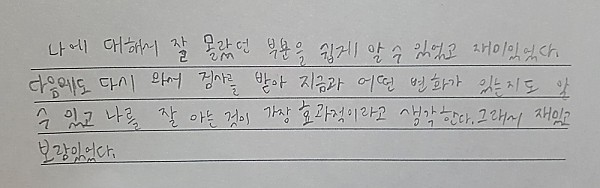 나에 대해서 잘 몰랐던 부분을 쉽게 알 수 있었고 재미있었다.
다음에도 다시 와서 검사를 받아 지금과 어떤 변화가 있는지도 알
수 있고 나를 잘 아는 것이 가장 효과적이라고 생각한다. 그래서 재밌고
보람있었다.